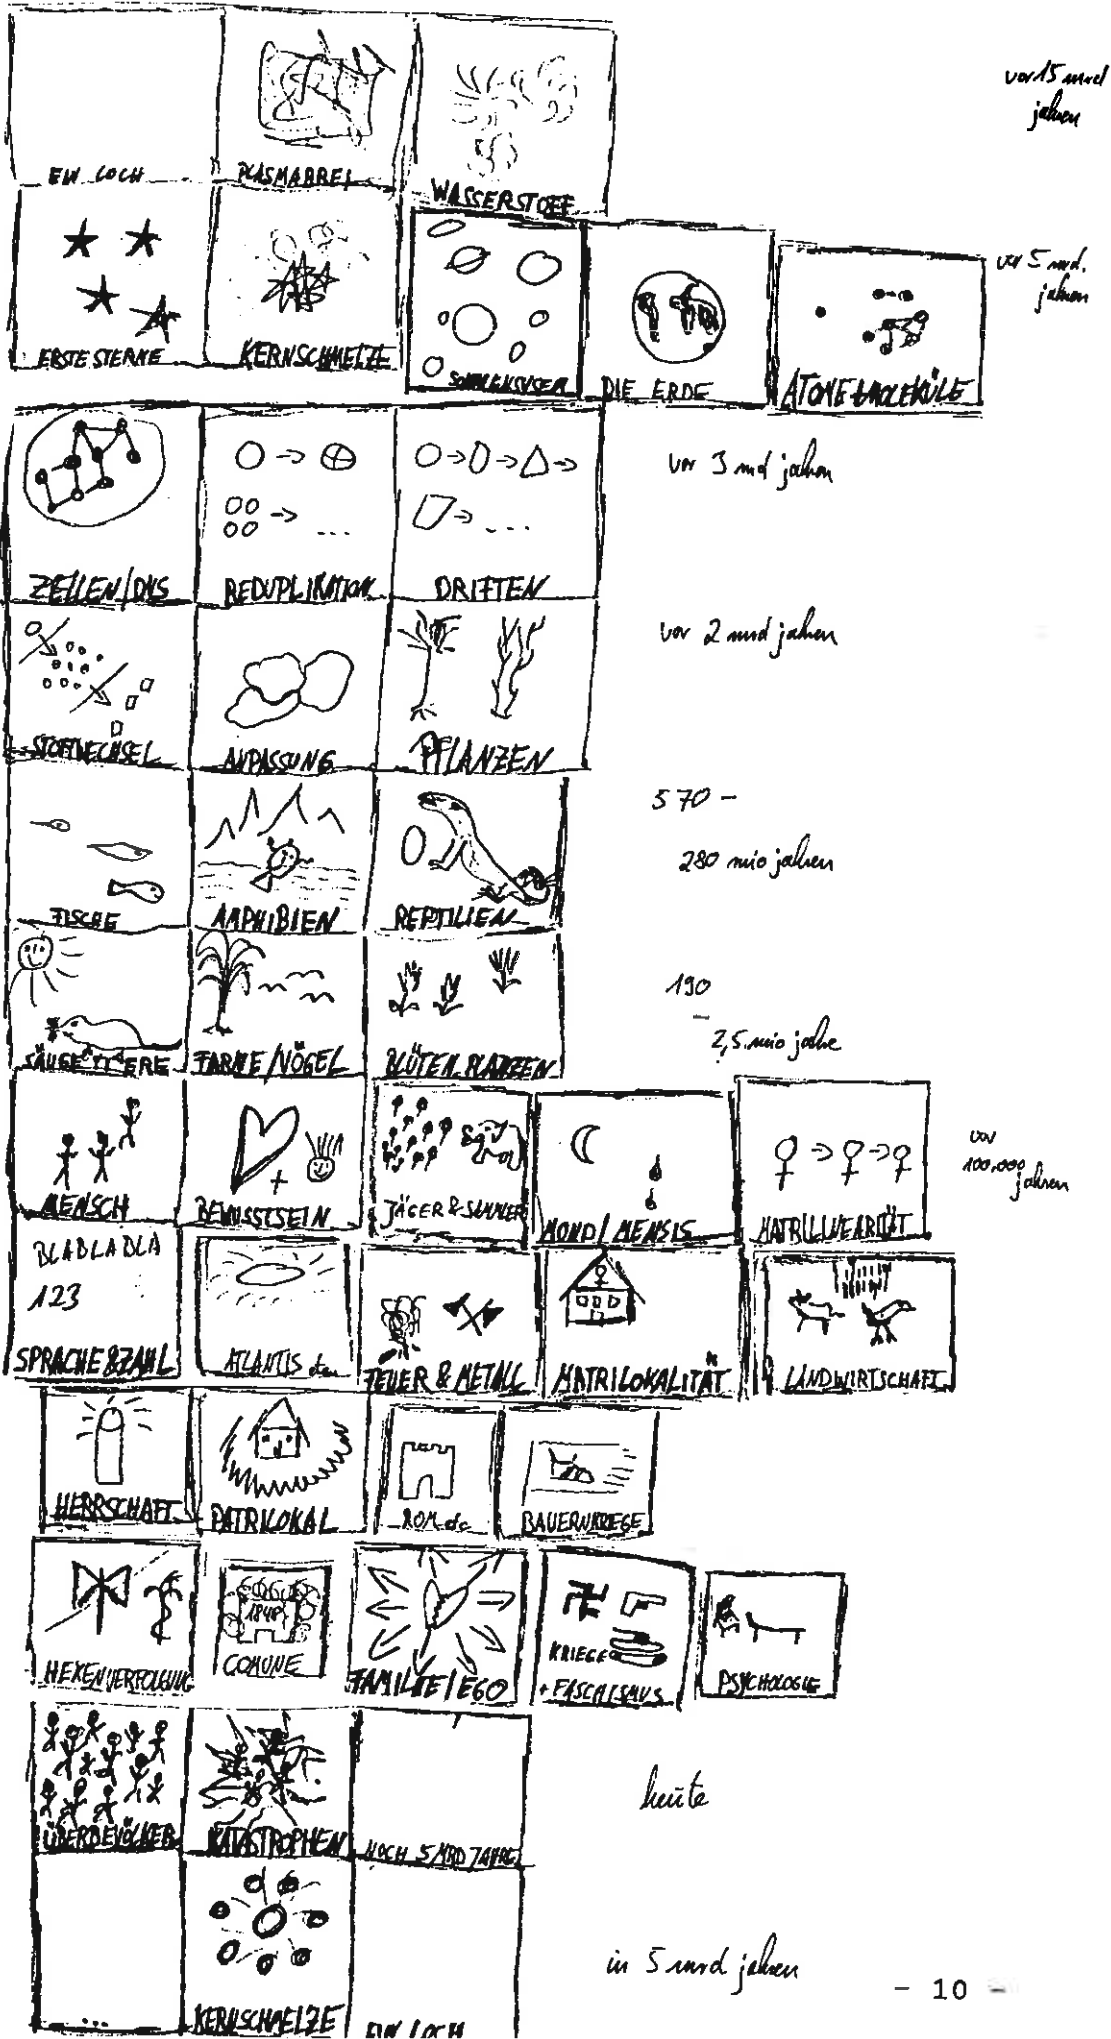 EIN LOCH PLASMABREI WASSERSTOFF
vor 15 mrd
jahren
ERSTE STERNE KERNSCHMELZE SONNENSYSTEM DIE ERDE ATOME & MOLEKÜLE
vor 5 mrd.
jahren
ZELLEN/DNS REDUPLIKATION DRIFTEN
vor 3 mrd jahren
STOFFWECHSEL ANPASSUNG PFLANZEN
vor 2 mrd jahren
FISCHE AMPHIBIEN REPTILIEN
570 -
280 mio jahren
SÄUGETIERE FARNE/VÖGEL BLÜTENPLANZEN
190
-
2,5 mio jahre
MENSCH BEWUSSTSEIN JÄGER & SAMMLER MOND/MENSIS MATRILINEARITÄT
vor
100.000
jahren
BLABLABLA
123
SPRACHE & ZAHL ATLANTIS etc FEUER & METALL MATRILOKALITÄT LANDWIRTSCHAFT
HERRSCHAFT PATRILOKAL ROM etc BAUERNKRIEGE
1848
HEXENVERFOLGUNG COMUNE FAMILIE/EGO KRIEGE
+ FASCHISMUS PSYCHOLOGIE
ÜBERBEVÖLKER. KATASTROPHEN NOCH 5 MRD JAHRE
heute
... KERNSCHMELZE EIN LOCH
in 5 mrd jahren
- 10 -